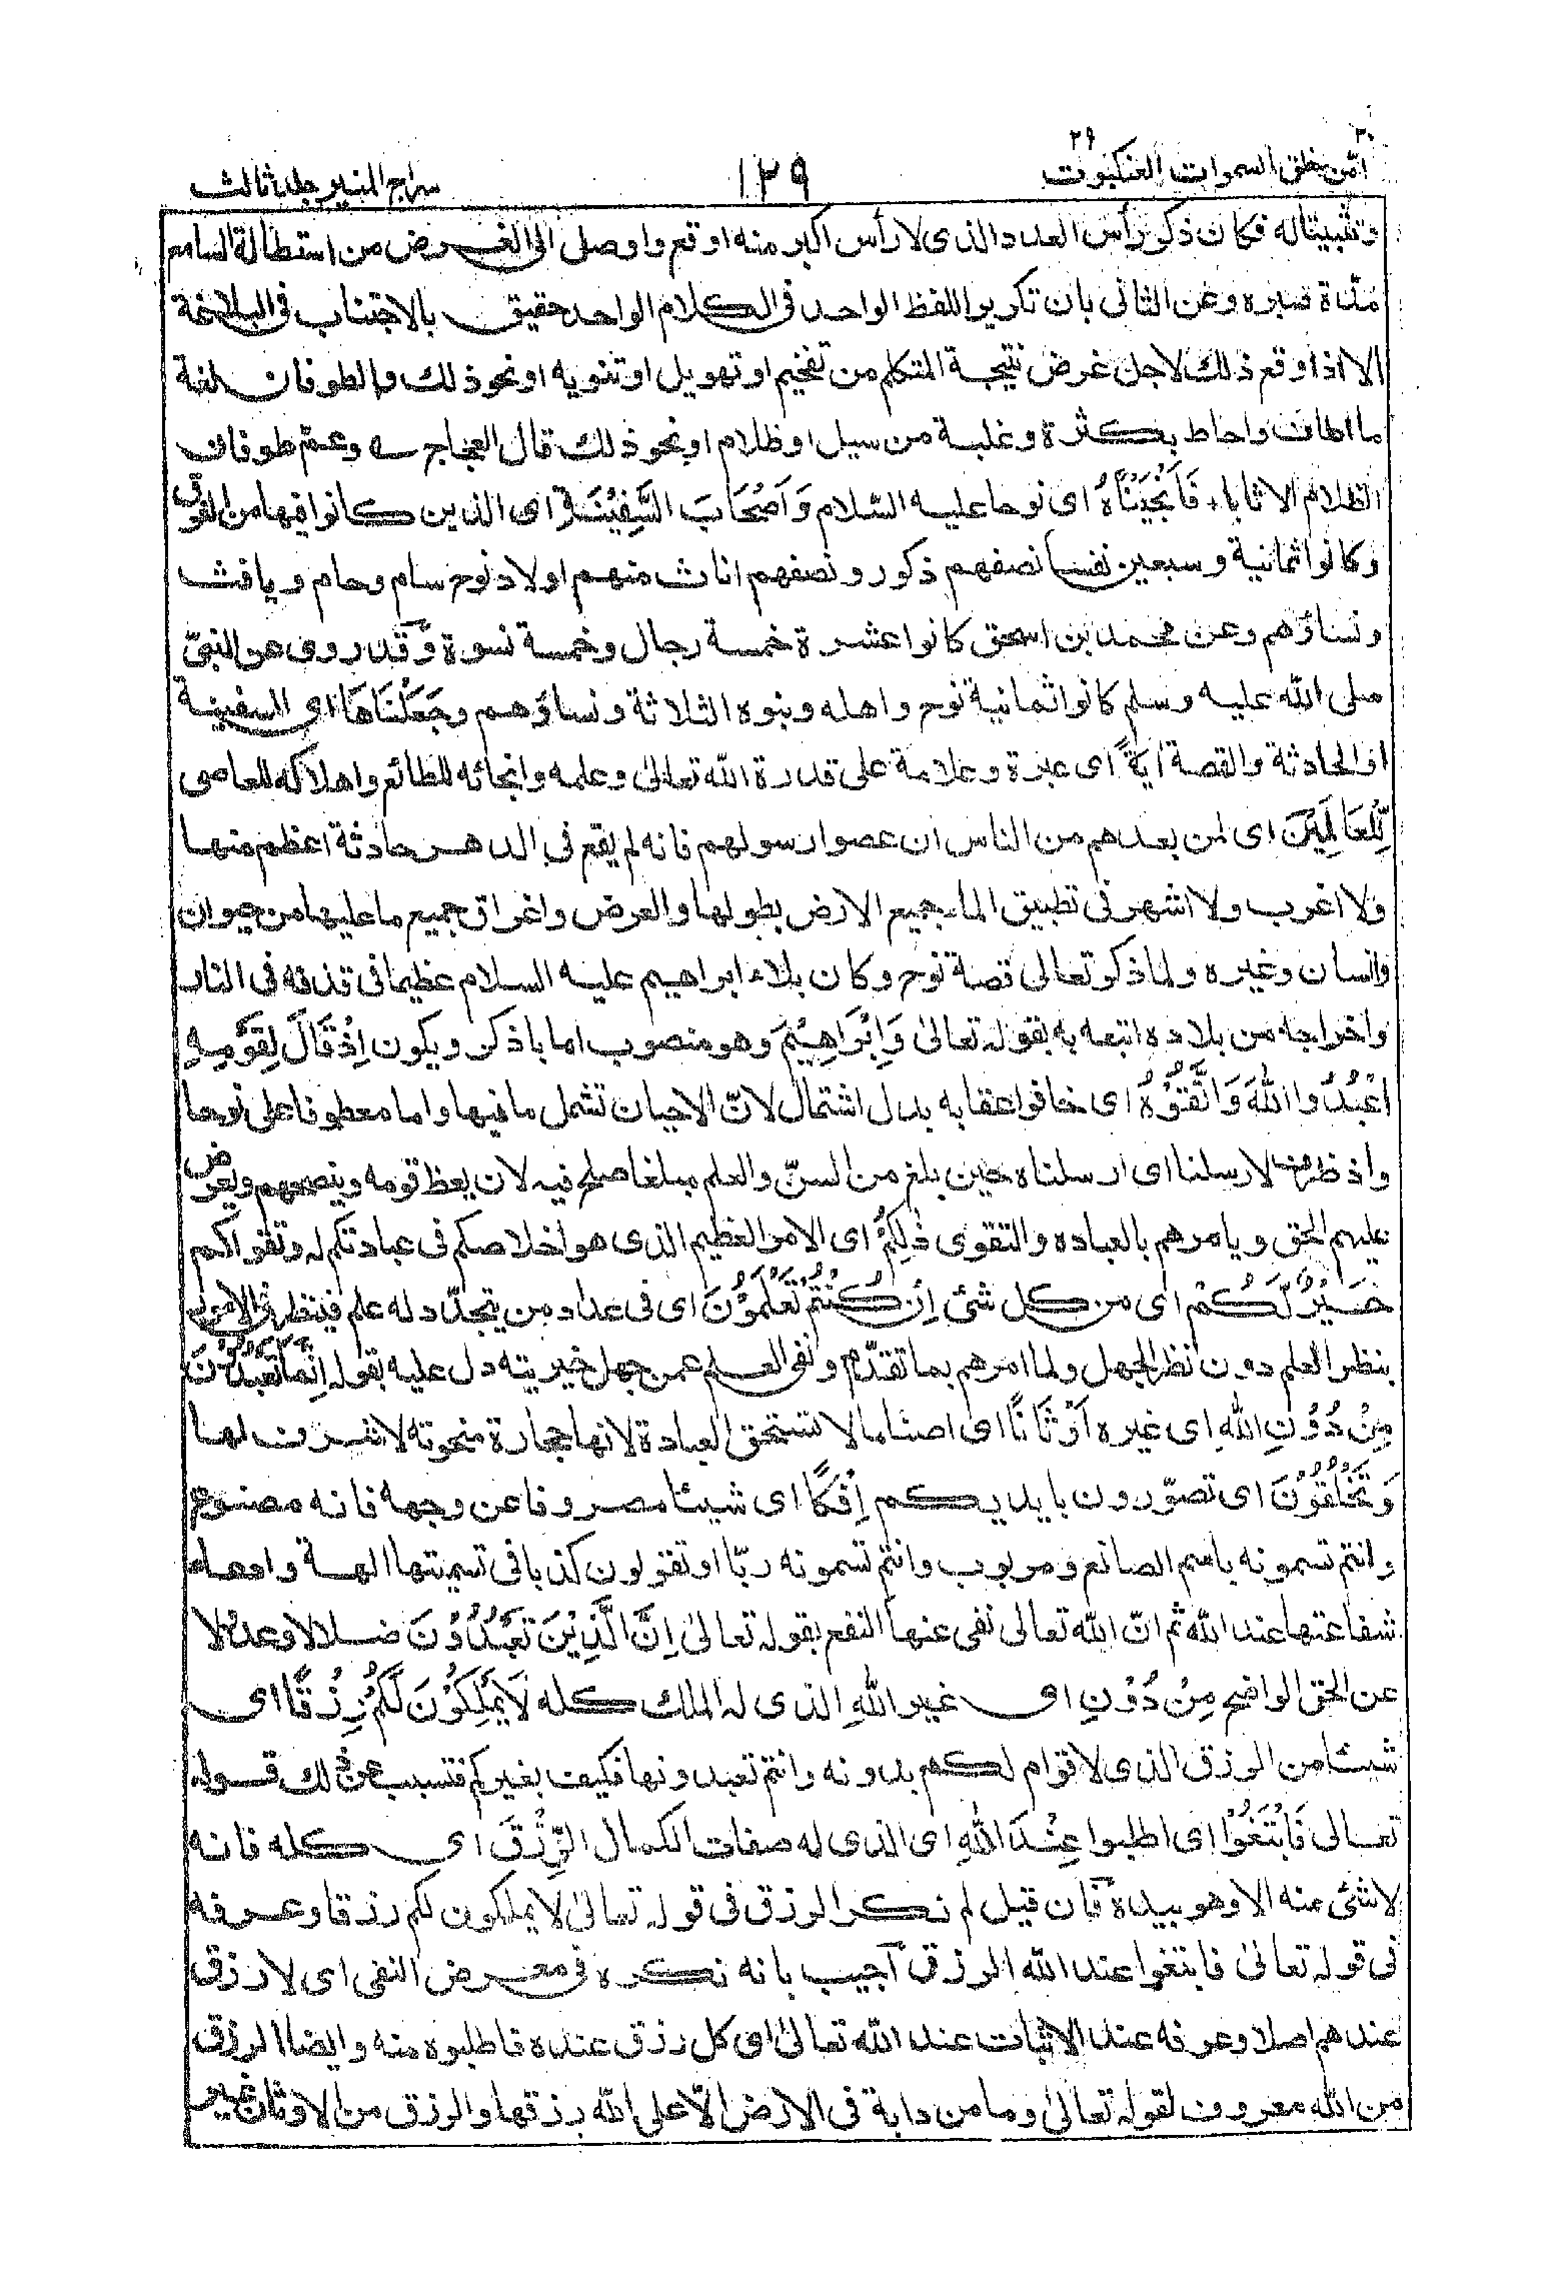 ٢٠
٢٩
امّن خلق السموات العنكبوت
١٢٩
سراج المنير جلد ثالث
وتثبيتاله فكان ذكر رأس العدد الذى لا رأس اكبر منه اوقع واوصل الى الغرض من استطالة السامع
مدّة صبره وعن الثانى بان تكرير اللفظ الواحد فى الكلام الواحد حقيق بالاجتناب فى البلاغة
الا اذا وقع ذلك لاجل غرض نتيجة المتكلم من تفخيم او تهويل او تنويه او نحو ذلك والطوفان لغة
ما اطاف واحاط بكثرة وغلبة من سيل او ظلام او نحو ذلك قال العجاج ے وعمّ طوفان
الظلام الاثابا ء فَاَنْجَيْنَاهُ اى نوحا عليه السّلام وَاَصْحَابَ السَّفِيْنَةِ اى الذين كانوا فيها من الغرق
وكانوا ثمانية وسبعين نفسا نصفهم ذكور ونصفهم اناث منهم اولاد نوح سام وحام ويافث
ونساؤهم وعن محمد بن اسحق كانوا عشرة خمسة رجال وخمسة نسوة وقد روى عن النبىّ
صلى الله عليه وسلم كانوا ثمانية نوح واهله وبنوه الثلاثة ونساؤهم وجَعَلْنَاهَا اى السفينة
او الحادثة والقصة اٰيَةً اى عبرة وعلامة على قدرة الله تعالىٰ وعلمه وانجائه للطائع واهلاكه للعاصى
لِّلْعَالَمِيْنَ اى لمن بعدهم من الناس ان عصوا رسولهم فانه لم يقع فى الدهر حادثة اعظم منها
ولا اغرب ولا اشهر فى تطبيق الماء جميع الارض بطولها والعرض واغراق جميع ما عليها من حيوان
وانسان وغيره ولما ذكر تعالى قصة نوح وكان بلاء ابراهيم عليه السلام عظيما فى قذفه فى النار
واخراجه من بلاده اتبعه به بقوله تعالىٰ وَاِبْرَاهِيْمَ وهو منصوب اما باذكر ويكون اِذْ قَالَ لِقَوْمِهِ
اعْبُدُوا اللّٰهَ وَاتَّقُوْهُ اى خافوا عقابه بدل اشتمال لانّ الاحيان تشمل ما فيها واما معطوفا على نوحا
واذ ظرف لارسلنا اى ارسلناه حين بلغ من السنّ والعلم مبلغا صلح فيه لان يعظ قومه وينصحهم ويعرض
عليهم الحق ويامرهم بالعباده والتقوى ذٰلِكُمْ اى الامر العظيم الذى هو اخلاصكم فى عبادتكم له وتقواكم
خَيْرٌ لَّكُمْ اى من كل شئ اِنْ كُنْتُمْ تَعْلَمُوْنَ اى فى عداد من يتجدّد له علم فينظر فى الامور
بنظر العلم دون نظر الجهل ولما امرهم بما تقدّم ونفى العلم عمن جهل خيريته دل عليه بقوله اِنَّمَا تَعْبُدُوْنَ
مِنْ دُوْنِ اللّٰهِ اى غيره اَوْثَانًا اى اصناما لا تستحق العبادة لانها حجارة منحوتة لا شرف لها
وَتَخْلُقُوْنَ اى تصوّرون بايديكم اِفْكًا اى شيئا مصروفا عن وجهه فانه مصنوع
وانتم تسمونه باسم الصانع ومربوب وانتم تسمونه ربّا او تقولون كذبا فى تسميتها الهة وادعاء
شفاعتها عند الله ثم انّ الله تعالى نفى عنها النفع بقوله تعالىٰ اِنَّ الَّذِيْنَ تَعْبُدُوْنَ ضلالا وعدولا
عن الحق الواضح مِنْ دُوْنِ اى غير اللّٰهِ الذى له الملك كله لَا يَمْلِكُوْنَ لَكُمْ رِزْقًا اى
شيئا من الرزق الذى لا قوام لكم بدونه وانتم تعبدونها فكيف بغيركم فتسبب عن ذلك قوله
تعالى فَابْتَغُوْا اى اطلبوا عِنْدَ اللّٰهِ اى الذى له صفات الكمال الرِّزْقَ اى كله فانه
لا شئ منه الا وهو بيده فان قيل لم نكر الرزق فى قوله تعالىٰ لا يملكون لكم رزقا وعرفه
فى قوله تعالىٰ فابتغوا عند الله الرزق اجيب بانه نكره فى معرض النفى اى لا رزق
عندهم اصلا وعرفه عند الاثبات عند الله تعالىٰ اى كل رزق عنده فاطلبوه منه وايضا الرزق
من الله معروف لقوله تعالىٰ وما من دابة فى الارض الّا على الله رزقها والرزق من الاوثان غير